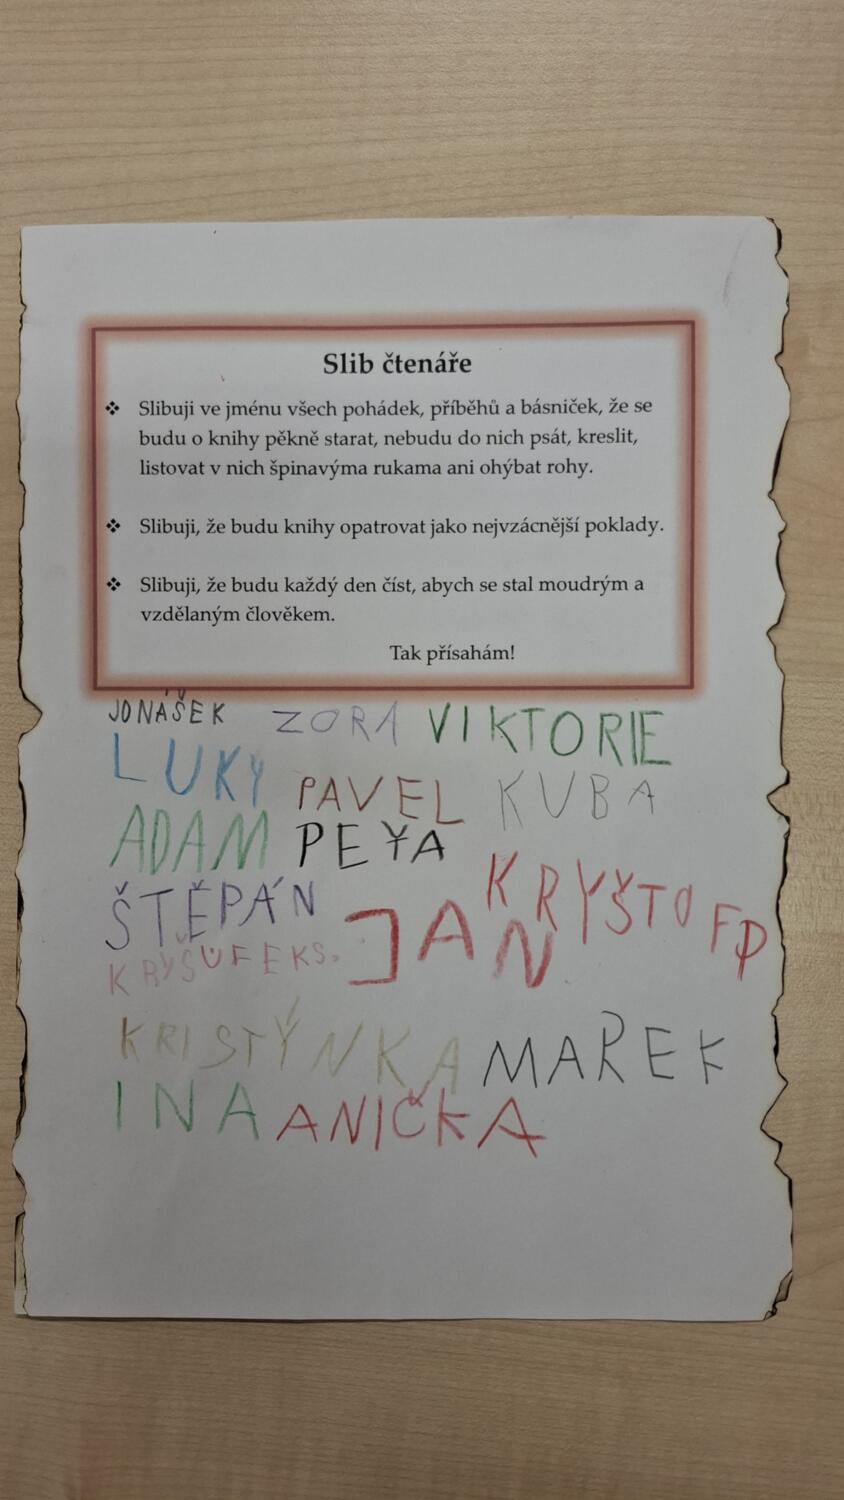 Slib čtenáře
❖ Slibuji ve jménu všech pohádek, příběhů a básniček, že se
budu o knihy pěkně starat, nebudu do nich psát, kreslit,
listovat v nich špinavýma rukama ani ohýbat rohy.
❖ Slibuji, že budu knihy opatrovat jako nejvzácnější poklady.
❖ Slibuji, že budu každý den číst, abych se stal moudrým a
vzdělaným člověkem.
Tak přísahám!
JONÁŠEK ZORA VIKTORIE
LUKY PAVEL KUBA
ADAM PEŤA
KRYŠTOF P
ŠTĚPÁN
JAN
KRISTÝNKA MAREK
INA ANIČKA